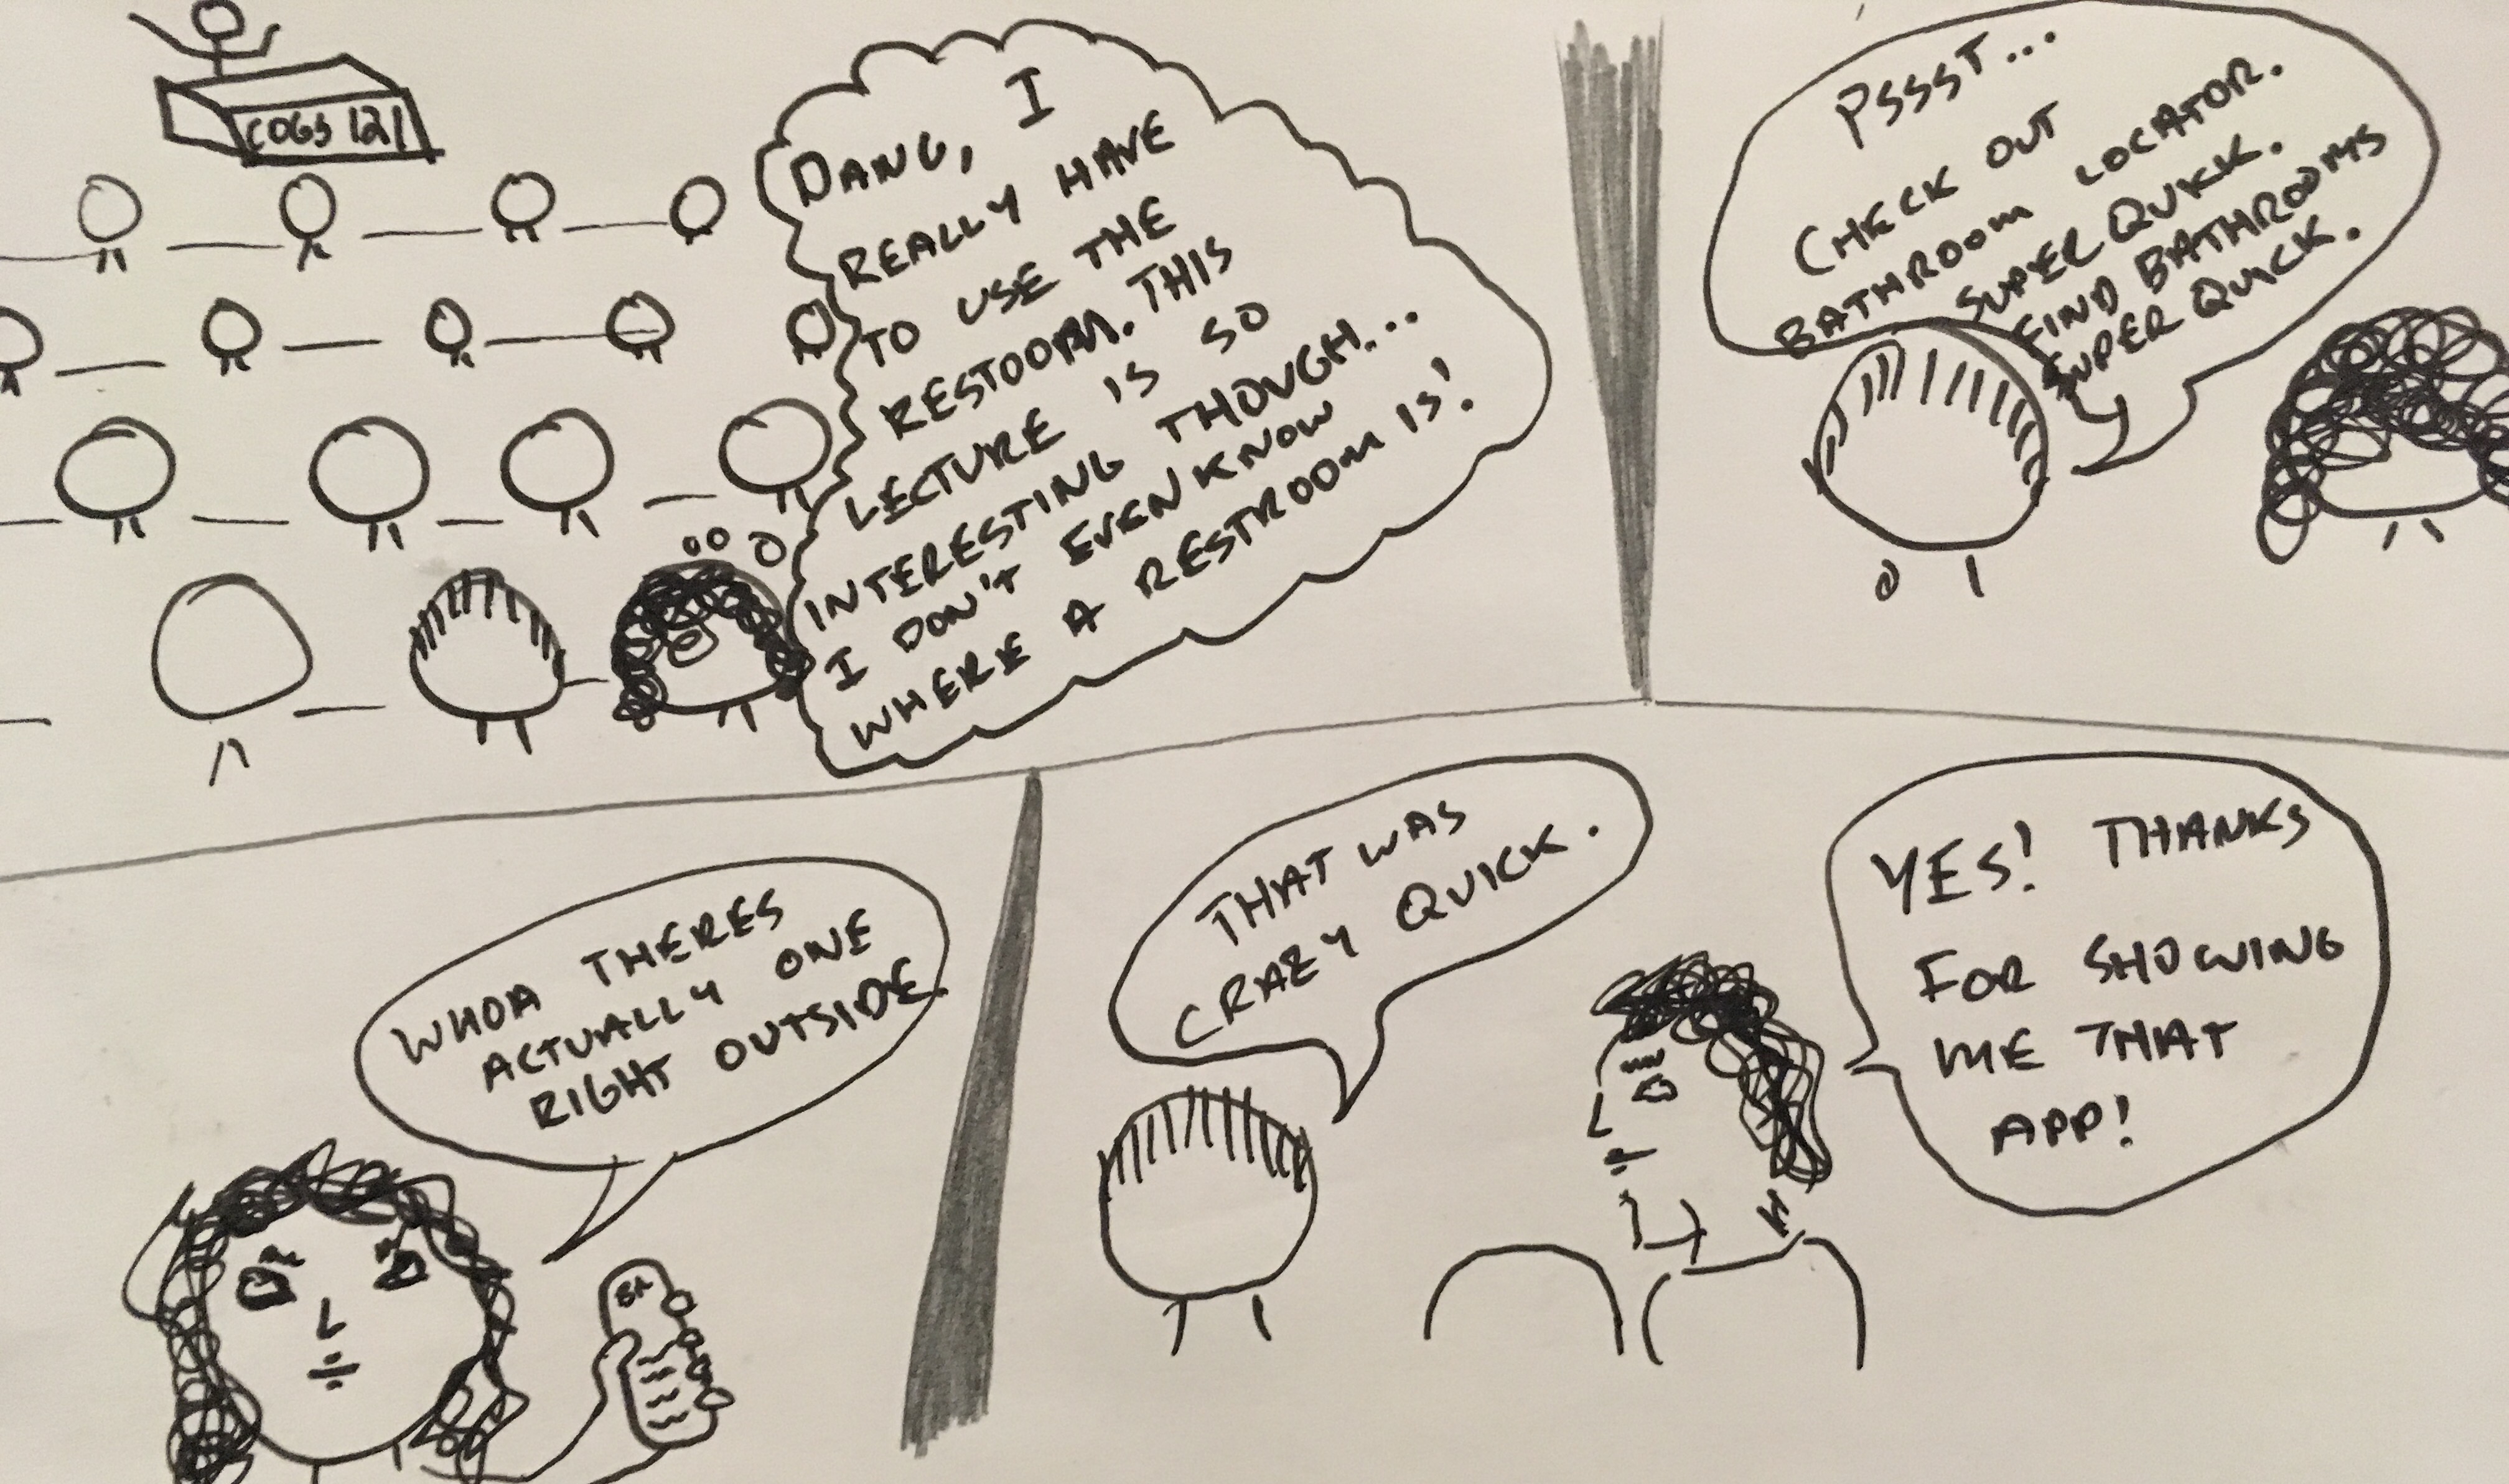 COGS 121
DANG, I
REALLY HAVE
TO USE THE
RESTOORM. THIS
LECTURE IS SO
INTERESTING THOUGH...
I DON'T EVEN KNOW
WHERE A RESTROOM IS!
PSSST...
CHECK OUT
BATHROOM LOCATOR.
SUPER QUICK.
FIND BATHROOMS
SUPER QUICK.
WHOA THERES
ACTUALLY ONE
RIGHT OUTSIDE.
THAT WAS
CRAZY QUICK.
YES! THANKS
FOR SHOWING
ME THAT
APP!